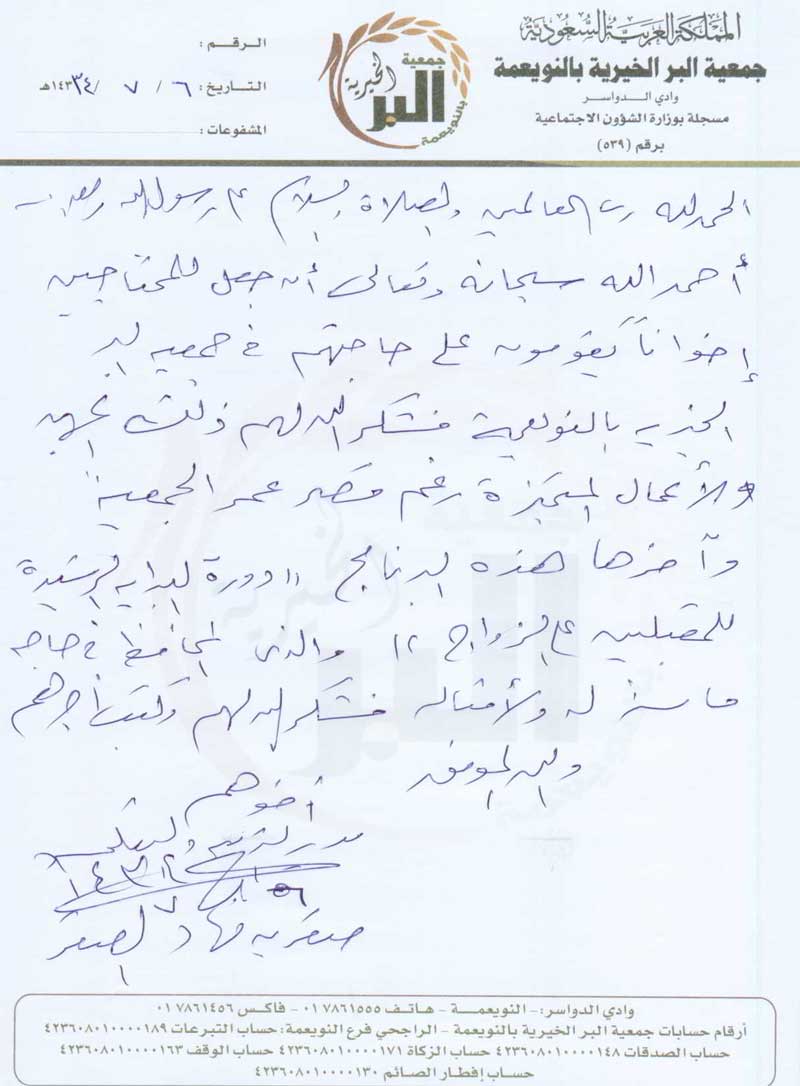 المملكة العربية السعودية
جمعية البر الخيرية بالنويعمة
وادي الدواسر
مسجلة بوزارة الشؤون الاجتماعية
برقم (٥٣٩)
جمعية
البر
الخيرية
بالنويعمة
الرقم :
التاريخ : ٦ / ٧ / ١٤٣٤هـ
المشفوعات :
الحمد لله رب العالمين والصلاة والسلام على رسول الله وبعد
أحمد الله سبحانه وتعالى أن جعل للمحتاجين
إخواناً يقومون على حاجتهم في جمعية البر
الخيرية بالنويعمة فشكر الله لهم ذلك الجهد
والأعمال المتميزة رغم قصر عمر الجمعية
وآخرها هذه البرنامج " دورة البداية الرشيدة
للمقبلين على الزواج " والذي المحافظة في حاجة
ماسة له ولأمثاله فشكر الله لهم وكتب أجرهم
والله الموفق
أخوهم
مدير التربية والتعليم
صقر بن فهاد الصقر
وادي الدواسر: - النويعمة - هاتف ٠١٧٨٦١٥٥٥ - فاكس ٠١٧٨٦١٤٥٦
أرقام حسابات جمعية البر الخيرية بالنويعمة - الراجحي فرع النويعمة: حساب التبرعات ٤٢٣٦٠٨٠١٠٠٠٠١٨٩
حساب الصدقات ٤٢٣٦٠٨٠١٠٠٠٠١٤٨ حساب الزكاة ٤٢٣٦٠٨٠١٠٠٠٠١٧١ حساب الوقف ٤٢٣٦٠٨٠١٠٠٠٠١٦٣
حساب إفطار الصائم ٤٢٣٦٠٨٠١٠٠٠٠١٣٠